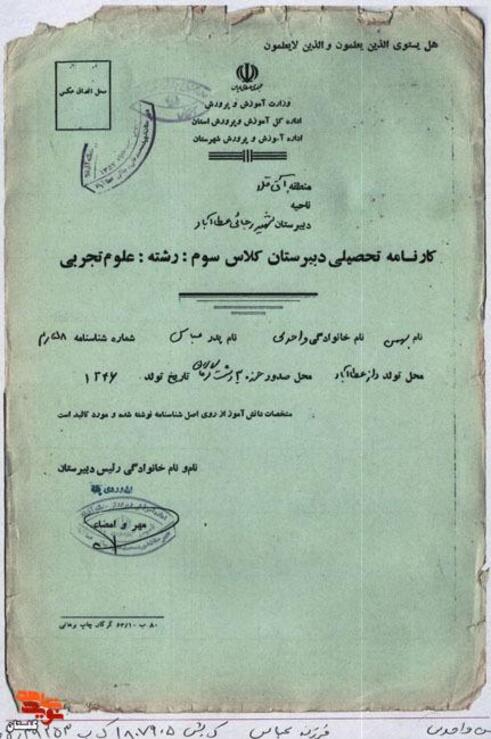 هل یستوی الذین یعلمون و الذین لایعلمون
محل الصاق عکس
جمهوری اسلامی ایران
وزارت آموزش و پرورش
اداره کل آموزش و پرورش استان
اداره آموزش و پرورش شهرستان
منطقه آق قلا
ناحیه
دبیرستان شهید رجائی عطاآباد
کارنامه تحصیلی دبیرستان کلاس سوم : رشته : علوم تجربی
نام بهمن نام خانوادگی واحدی نام پدر عباس شماره شناسنامه
محل تولد عطاآباد محل صدور حوزه ۳ تاریخ تولد ۱۳۴۶
مشخصات دانش آموز از روی اصل شناسنامه نوشته شده و مورد تائید است
نام و نام خانوادگی رئیس دبیرستان
مهر و امضاء
۸۰ ب - ۶۳/۱۰ گرگان چاپ
نوید
گلستان
واحدی فرزند عباس ک پستی ۱۸۰۷۹۰۵